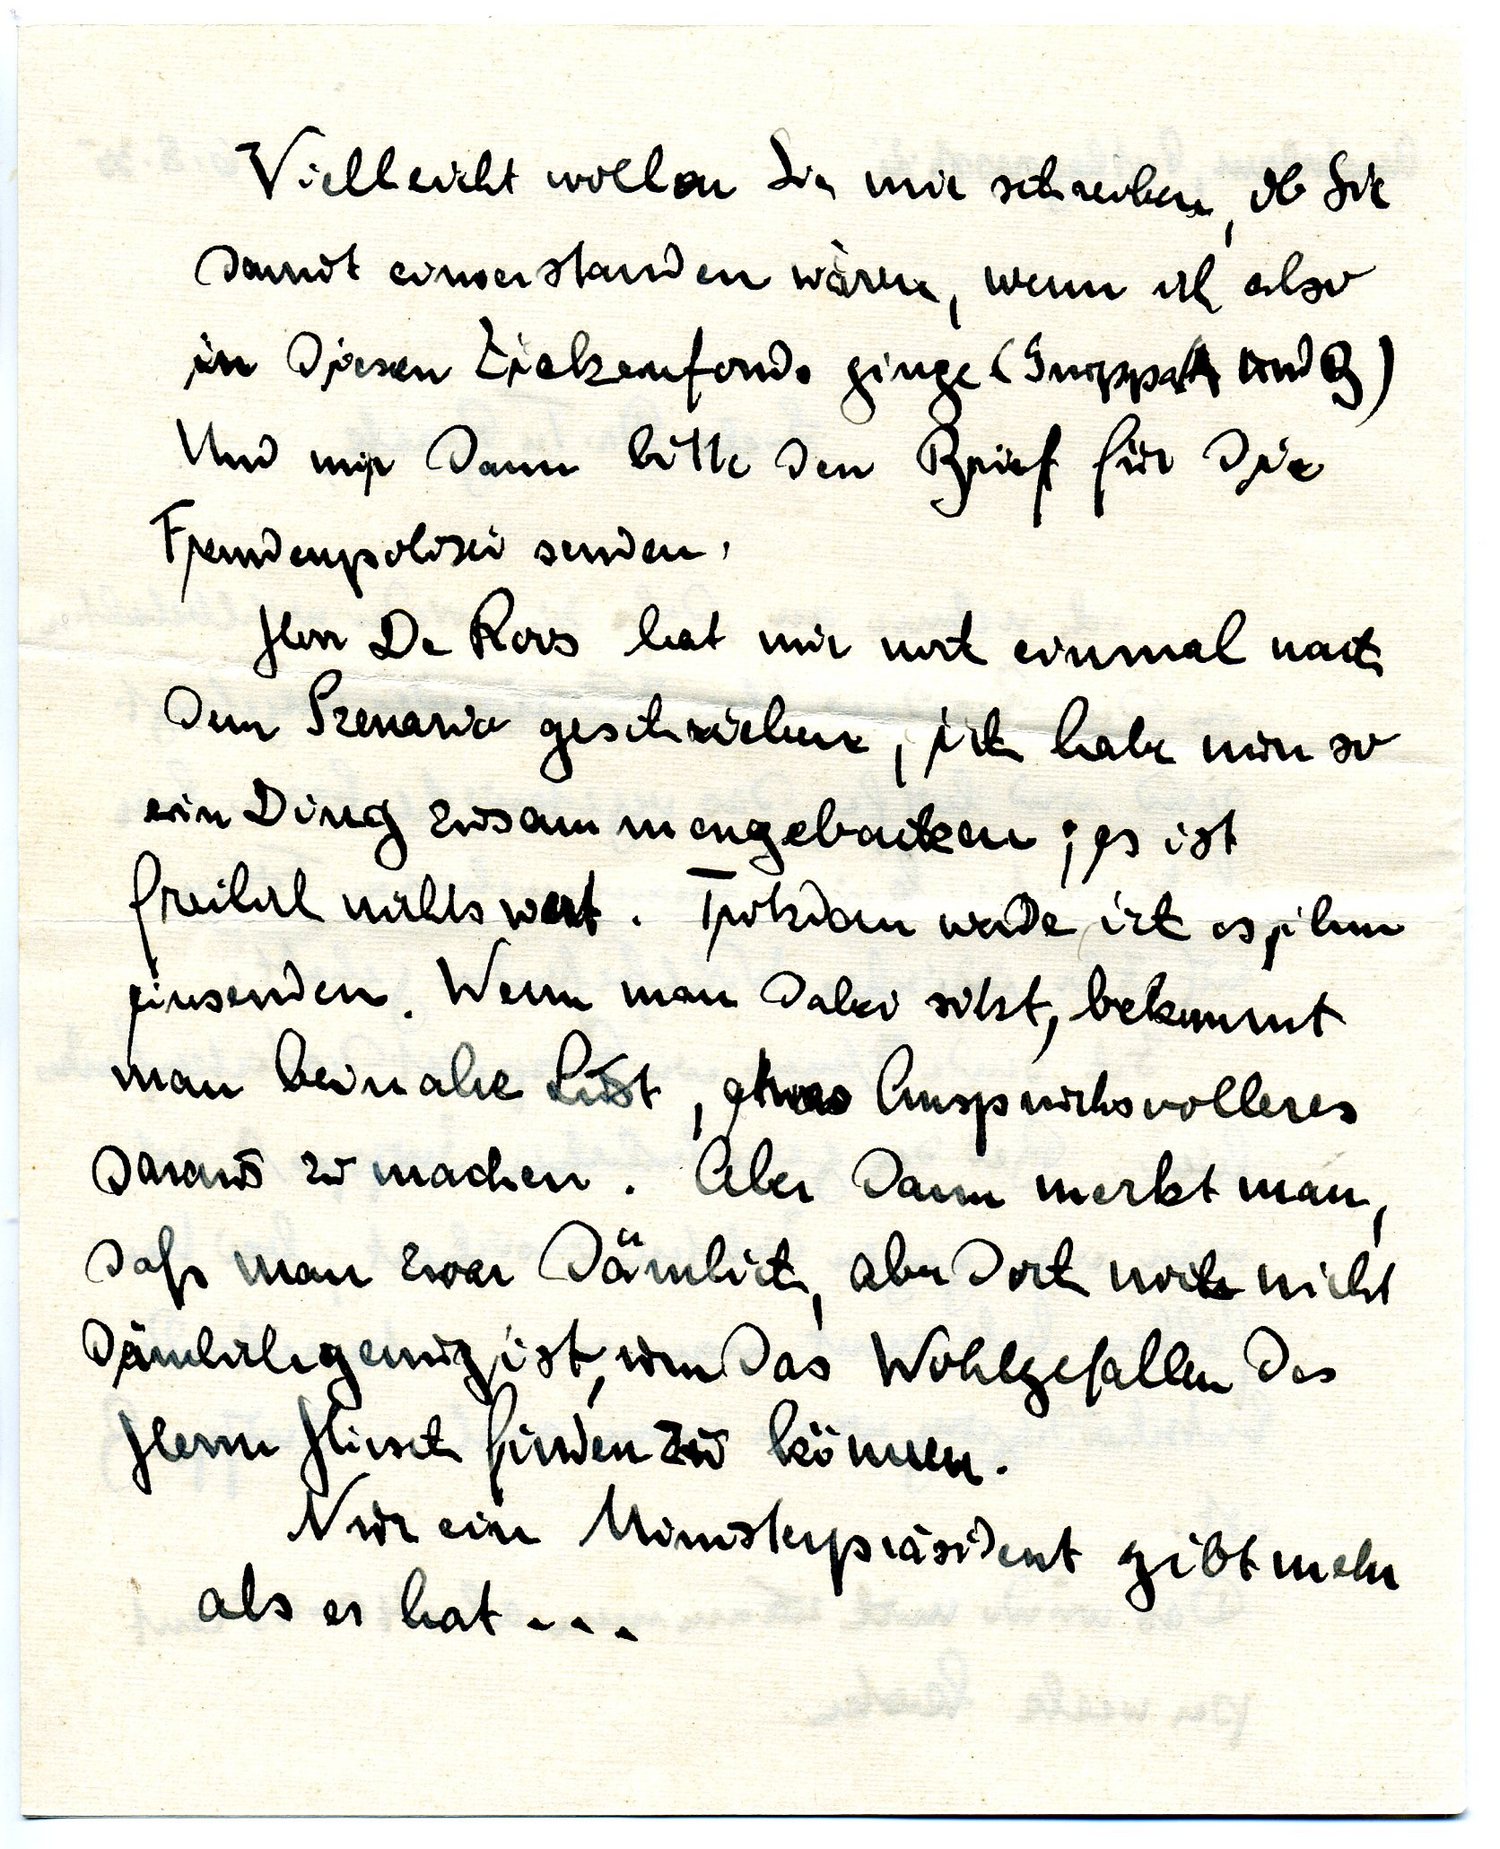 Vielleicht wollen Sie mir schreiben, ob Sie
damit einverstanden wären, wenn ich also
in diesen Zickenfonds ginge (Gruppe A und B)
Und mir dann bitte den Brief für die
Fremdenpolizei senden.
Herr De Kovs hat mir noch einmal nach
dem Szenario geschrieben, ich habe nun so
ein Ding zusammengebacken; es ist
freilich nichts wert. Trotzdem werde ich es ihm
einsenden. Wenn man dabei sitzt, bekommt
man beinahe Lust, etwas Anspruchsvolleres
daraus zu machen. Aber dann merkt man,
daſs man zwar dämlich, aber doch noch nicht
dämlich genug ist, um das Wohlgefallen des
Herrn Hirsch finden zu können.
Nur ein Ministerpräsident gibt mehr
als er hat ...